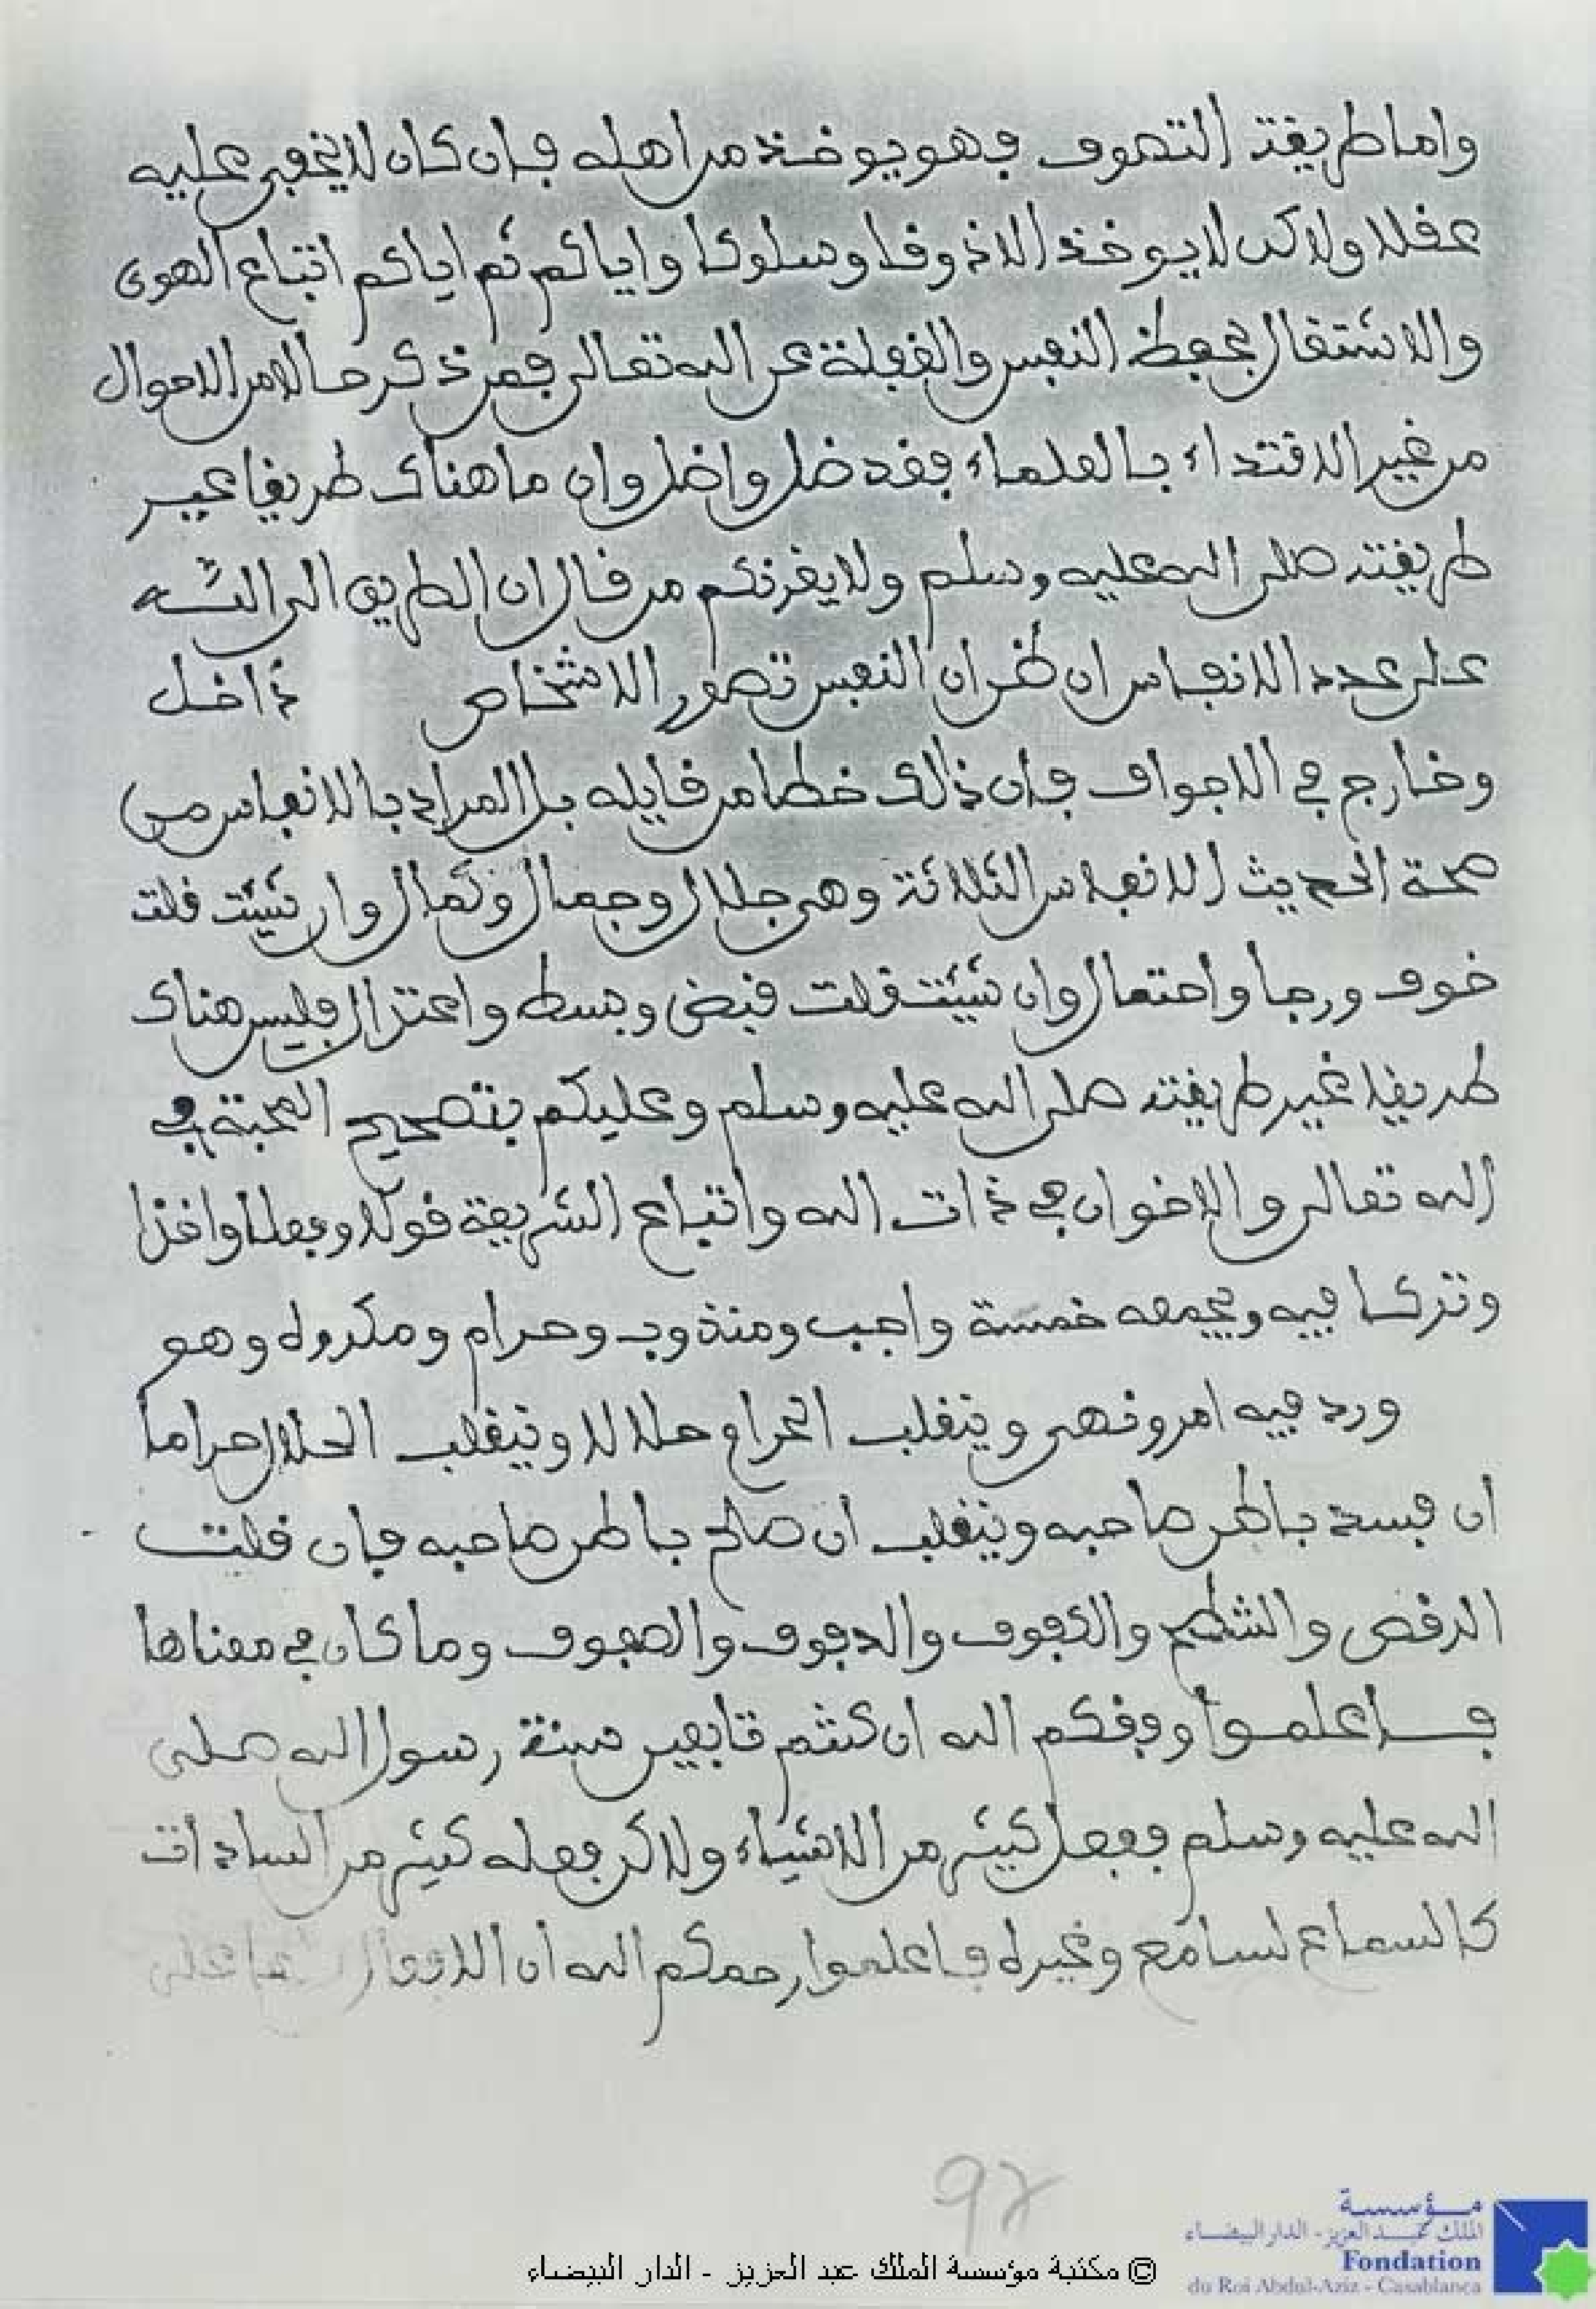 واما طريقة التصوف فهو يوخذ من اهله فان كان لا يخفى عليه
عقلا ولاكن لا يوخذ الا ذوقا وسلوكا واياكم ثم اياكم اتباع الهوى
والاشتغال بحفظ النفس والغفلة عن الله تعالى فمن ذكر حالا من الاحوال
من غير الاقتداء بالعلماء فقد ضل واضل وان ما هناك طريقا غير
طريقته صلى الله عليه وسلم ولا يغرنكم من قال ان الطريق الى الله
على عدد الانفاس ان ظن ان النفس تصور الاشخاص داخل
وخارج في الاجواف فان ذلك خطا من قايله بل المراد بالانفاس من
صحة الحديث الانفاس الثلاثة وهي جلال وجمال وكمال وان شيئت قلت
خوف ورجا واحتمال وان شيئت قلت قبض وبسط واعتزال فليس هناك
طريقا غير طريقته صلى الله عليه وسلم وعليكم بتصحيح المحبة في
الله تعالى والاخوان في ذات الله واتباع الشريعة قولا وفعلا واخذا
وتركا فيه ويجمعه خمسة واجب ومندوب وحرام ومكروه وهو
ورد فيه امر ونهي وينقلب الحرام حلالا وينقلب الحلال حراما
ان فسد باطن صاحبه وينقلب ان صلح باطن صاحبه فان قلت
الرقص والشطح والكفوف والدفوف والصفوف وما كان في معناها
فاعلموا وفقكم الله ان كنتم تابعين سنة رسول الله صلى
الله عليه وسلم ففعل كثير من الاشياء ولاكن فعله كثير من السادات
كالسماع لسامع وغيره فاعلموا رحمكم الله ان الافعال على
97
© مكتبة مؤسسة الملك عبد العزيز - الدار البيضاء
مؤسسة
الملك عبد العزيز - الدار البيضاء
Fondation
du Roi Abdul-Aziz - Casablanca